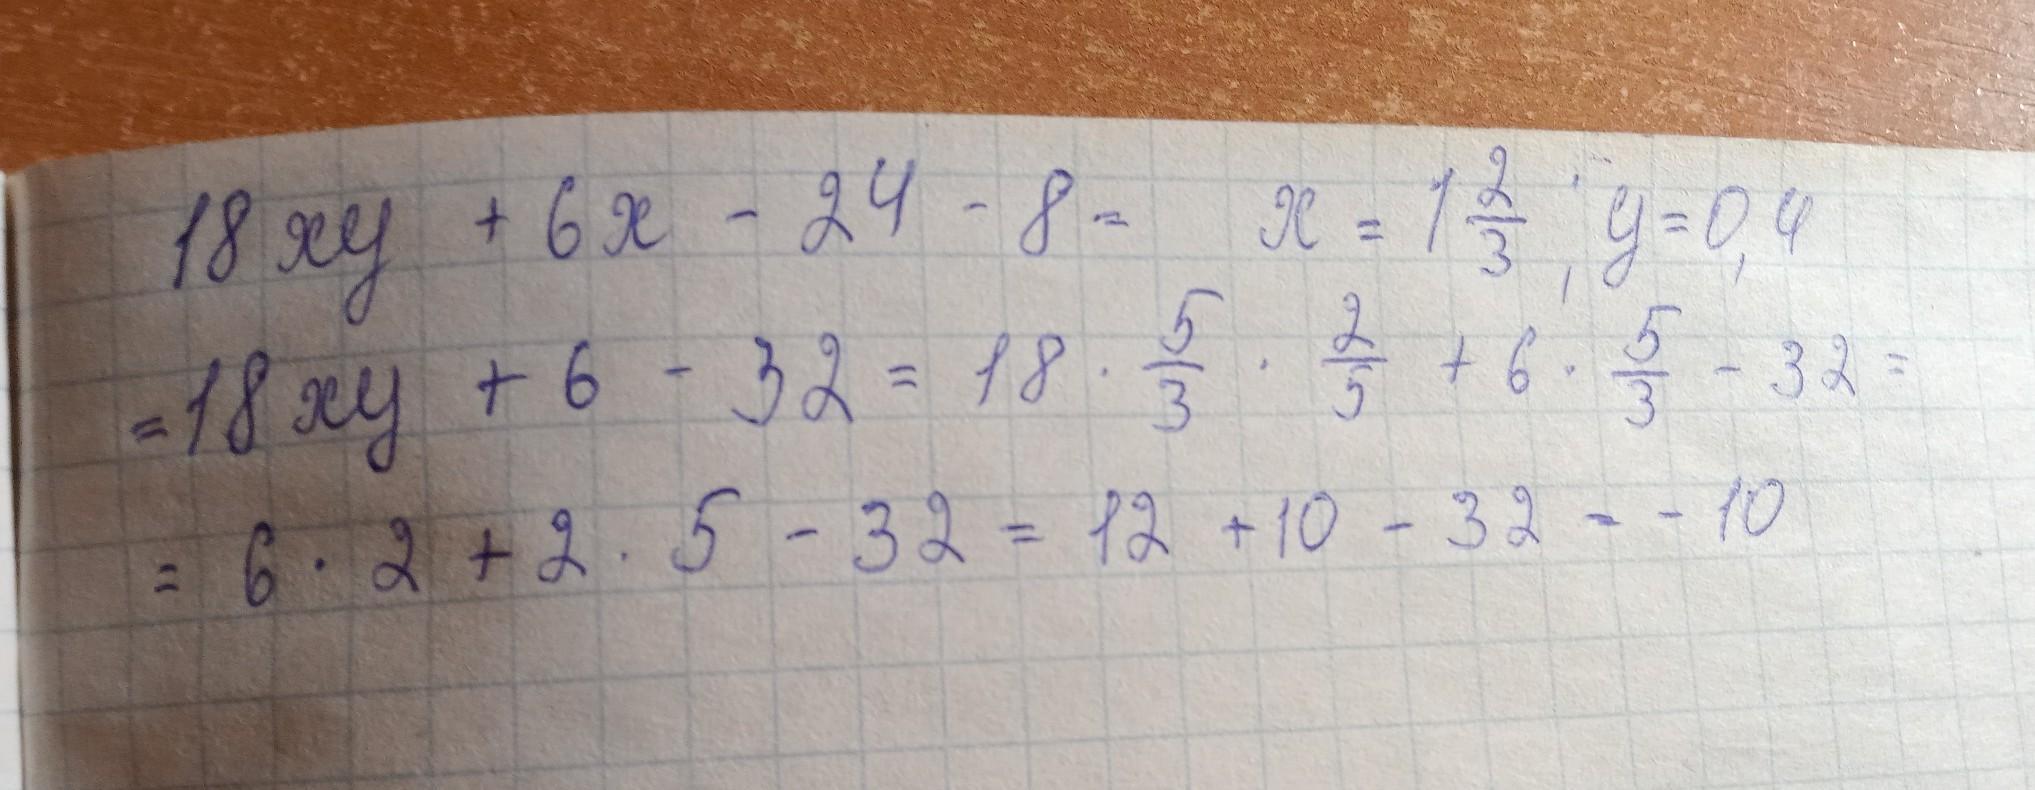 18xy + 6x - 24 - 8 = x = 1 2/3; y = 0,4
= 18xy + 6 - 32 = 18 · 5/3 · 2/5 + 6 · 5/3 - 32 =
= 6 · 2 + 2 · 5 - 32 = 12 + 10 - 32 = -10